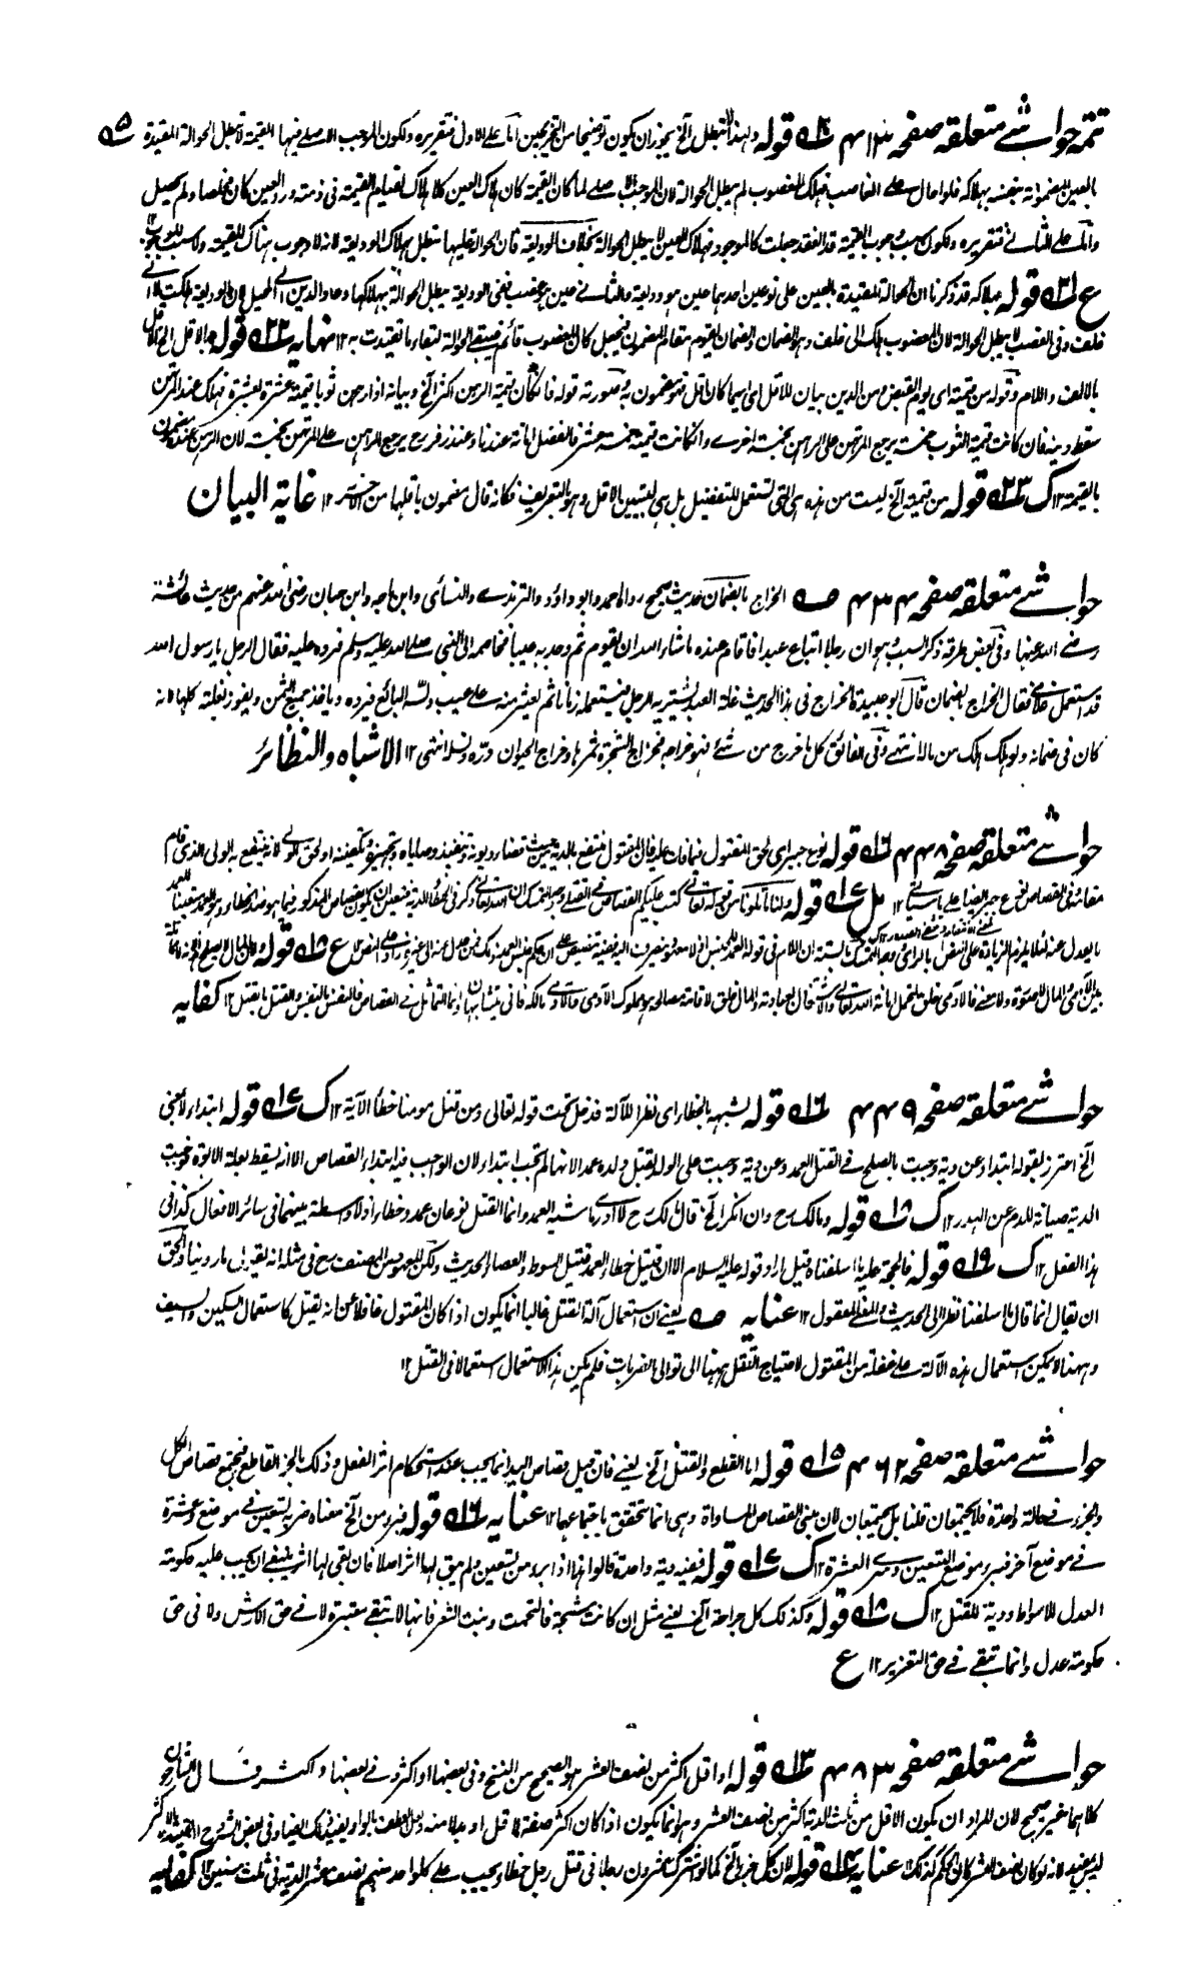 تتمہ حواشے متعلقہ صفحہ ١٣ م قولہ ولہذا لا تبطل الخ يجوز ان يكون توضيحا من التخريجين اما على الاول فتقريره ولكون الموجب الاصلے فيها القيمة لا تبطل الحوالة المقيدة
بالعين المضمونة بنفسه بهلاكه فلو احال علے الغاصب فهلك المغصوب لم يبطل الحوالة لان الموجب الاصلے لما كان القيمة كان هلاك العين كلا هلاك لقيام القيمة فى ذمته ورد العين كان مخلصا ولم يحصل
واما على الثانے فتقريره ولكون سبب وجوب القيمة قد انعقد جعلت كالموجود فهلاك العين لا يبطل الحوالة بخلاف الوديعة فان الحوالة عليها تبطل بهلاك الوديعة لانه لا وجوب هناك للقيمة ولا سبب للوجوب
ع قولہ بهلاكه قد ذكرنا ان الحوالة المقيدة بالعين على نوعين احدهما عين هو وديعة والثانے عين هو غصب ففى الوديعة يبطل الحوالة بهلاكها وعاد الدين الے المحيل لان الوديعة هلكت لا الے
خلف وفى الغصب لا يبطل الحوالة لان المغصوب هلك الى خلف وهو الضمان والضمان يقوم مقام المضمون فيجعل كان المغصوب قائم فيبقے الحوالة لبقاء ما تقيدت به ١٢ نهايه قولہ بالاقل الخ
بالالف واللام وقوله من قيمته اى يوم القبض ومن الدين بيان للاقل اى ايهما كان اقل فهو مضمون به صورته قوله فلو كان قيمة الرهن اكثر الخ وبيانه اذا رهن ثوبا قيمته عشرة بعشرة فهلك عند المرتهن
سقط دينه فان كانت قيمة الثوب خمسة يرجع المرتهن على الراهن بخمسة اخرے وان كانت قيمته خمسة عشر فالفضل امانة عندنا وعند زفر رح يرجع الراهن علے المرتهن بخمسة لان الرهن عنده مضمون
بالقيمة ١٢ ك قولہ من قيمته الخ ليست من هذه هى التى تستعمل للتفضيل بل هى لتبيين الاقل وهو بالتعريف فكانه قال مضمون باقلهما من الآخر ١٢ غاية البيان
حواشے متعلقہ صفحہ ٣٤ م الخراج بالضمان حديث صحيح رواه احمد وابو داؤد والترمذے والنسائى وابن ماجه وابن حبان رضى الله عنهم من حديث عائشة
رضے الله عنها وفى بعض طرقه ذكر السبب هو ان رجلا ابتاع عبدا فاقام عنده ما شاء الله ان يقوم ثم وجد به عيبا فخاصمه الى النبى صلے الله عليه وسلم فرده عليه فقال الرجل يا رسول الله
قد استعمل غلامى فقال الخراج بالضمان قال ابو عبيدة الخراج فى هذا الحديث غلة العبد يشتريه الرجل فيستعمله زمانا ثم يعثر منه علے عيب دلسه البائع فيرده وياخذ جميع الثمن ويفوز بغلته كلها لانه
كان فى ضمانه ولو هلك هلك من ماله انتهے وفى الفائق كل ما خرج من شئ فهو خراجه فخراج الشجرة ثمرها وخراج الحيوان دره ونسله انتهى ١٢ الاشباه والنظائر
حواشے متعلقہ صفحہ ٤٤٨ م ١٦ قولہ نوع جبر اى لحق المقتول فيما فات عليه فان المقتول منتفع بالدية حيث قضاء ديونه وتنفيذ وصاياه وتجهيزه وتكفينه او لحق الولے لانه ينتفع به الولى الذى قام
مقامه ففى القصاص نوع جبر ايضا على ما ياتے ١٢ مل قولہ ولنا ما تلونا من قوله تعالے كتب عليكم القصاص فى القتلے وجه التمسك ان الله تعالے ذكر فى الخطأ الدية فتعين ان يكون القصاص المذكور فيما هو ضد الخطأ وهو العمد
بالعدل عنه لئلا يلزم الزيادة على النص بالرأى
بين الآدمى والمال لا صورة ولا معنے فالآدمى خلق لتحمل امانة الله تعالے والاشتغال لعبادته والمال خلق لاقامة مصالحه
حواشے متعلقہ صفحہ ٤٤٩ م ١٦ قولہ يشبه بالخطاء اى نظرا للآلة فدخل تحت قوله تعالى ومن قتل مومنا خطأ الآية ١٢ ك ١٧ قولہ ابتداء لا بمعنى
الخ احترز بقوله ابتداء عن دية وجبت بالصلح فے القتل العمد وعن دية وجبت على الوالد بقتل ولده عمدا لانها لم تجب ابتداء لان الواجب فيه ابتداء القصاص الا انه يسقط بعلة الابوة فوجبت
الدية صيانة للدم عن الهدر ١٢ ك ١٨ قولہ ومالك رح وان انكر الخ قال مالك رح لا ادرے ما شبه العمد وانما القتل نوعان عمد وخطاء اذ لا واسطة بينهما فى سائر الافعال فكذا فى
هذا الفعل ١٢ ك ١٩ قولہ فالحجة عليه ما اسلفناه قيل اراد قوله عليه السلام الا ان قتيل خطأ العمد قتيل السوط والعصا والحديث ولكن المعهود من المصنف رح فى مثله ان يقول لما روينا والحق
ان يقال انما قال ما اسلفنا نظرا الى الحديث والمعنے المعقول ١٢ عنايه يعنے ان استعمال آلة القتل غالبا انما يكون اذا كان المقتول غافلا عن انه يقتل كاستعمال السكين والسيف
وههنا لا يمكن استعمال هذه الآلة علے غفلة من المقتول لاحتياج القتل ههنا الى توالى الضربات فلم يكن هذا الاستعمال استعمالا فى القتل ١٢
حواشے متعلقہ صفحہ ٤٦٢ م ١٥ قولہ اما القطع والقتل الخ يعنے فان قيل قصاص اليد انما يجب عند استحكام اثر الفعل وذلك بالجز القاطع فيجتمع قصاص الكل
والجزء فے حالة واحدة فلا يجتمعان قلنا بل يجتمعان لان مبنى القصاص المساواة وهى انما تتحقق باجتماعهما ١٢ عنايه ١٦ قولہ فبرء من الخ معناه ضربه تسعين فے موضع وعشرة
فے موضع آخر فبرء موضع التسعين وسرى العشرة ١٢ ك ١٧ قولہ ففيه دية واحدة قالوا هذا اذا برء من تسعين ولم يبق لها اثر اصلا فان بقى لها اثر ينبغے ان يجب عليه حكومة
العدل للاسواط ودية للقتل ١٢ ك ١٨ قولہ وكذلك كل جراحة الخ يعنے مثل ان كانت شجة فالتحمت ونبت الشعر فانها لا تبقے معتبرة لا فے حق الارش ولا فى حق
حكومة عدل وانما تبقے فے حق التعزير ١٢ ع
حواشے متعلقہ صفحہ ٤٨٣ م ١٣ قولہ او اقل اكثر من نصف العشر هو الصحيح من النسخ وفى بعضها او اكثر وفے بعضها واكثر قال الشارحون
كلاهما غير صحيح لان المراد ان يكون الاقل من ثلث الدية اكثر من نصف العشر وهو انما يكون اذا كان اكثر صفة لاقل او بدلا منه
ليس بمفيد لانه لو كان نصف العشر كان الحكم كذلك ١٢ عنايه ١٤ قولہ لان كل جزء الخ كما لو اشترك عشرون رجلا فى قتل رجل خطاء يجب علے كل واحد منهم نصف عشر الدية فى ثلث سنين ١٢ كفايه